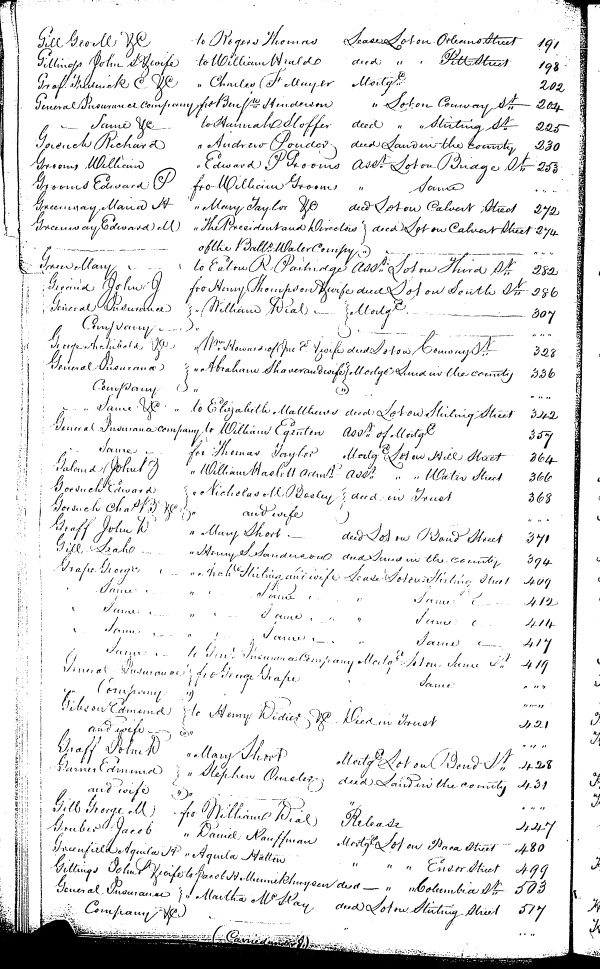 Gill Geo M &C to Rogers Thomas Lease Lot on Orleans Street 191
Gittings John S & wife to William Heald deed " " Pitt Street 198
Graf Frederick C &C " Charles F Mayer Mortge 202
General Insurance company fro Benjn Henderson " Lot on Conway St 204
Same &C to Hannah Stoffer deed " " Stirling St 225
Gorsuch Richard " Andrew Ponder deed Land in the county 230
Grooms William " Edward P Grooms Asst Lot on Bridge St 253
Grooms Edward P fro William Grooms " Same " " "
Greenway Maria H " Mary Taylor &C deed Lot on Calvert Street 272
Greenway Edward M " The President and Directors } deed Lot on Calvert Street 274
of the Balto Water Compy } " " "
Green Mary to Eaton R Partridge Asst Lot on Third St 282
John J fro Henry Thompson & wife deed Lot on South St 286
General Insurance } " William Dial } Mortge 307
Company " " "
George Archibald &C " Wm Howard of Jno E & wife deed Lot on Conway St 328
General Insurance } " Abraham Shaver and wife } Mortge Land in the county 336
Company } " " " "
" Same &C " to Elizabeth Matthews deed Lot on Stirling Street 342
General Insurance company to William Egenton Asst of Mortge 357
Same fro Thomas Taylor Mortge Lot on Hill Street 364
John " William Haslett admr Asst " " Water Street 366
Gorsuch Edward } " Nicholas M Bosley } deed in Trust 368
Gorsuch Chas &C } and wife } " " "
Graff John " Mary Short deed Lot on Bond Street 371
Gill Leah " Henry S Sanderson deed Land in the county 394
Grape George " Archd Stirling and wife Lease Lot on Stirling Street 409
" Same " " Same " Same 412
Same " " Same " " Same 414
Same " " Same " Same 417
Same to Genl Insurance Company Mortge Lot on Same St 419
General Insurance } fro George Grape Same " " "
Company } " " "
Gibson Edmund } to Henry Didier &C Deed in Trust 421
and wife } " " "
Graff John " Mary Short Mortge Lot on Bond St 428
Garner Edmund } " Stephen deed Land in the county 431
and wife } " " " "
Gill George M fro William Dial Release 447
Gruber Jacob " Daniel Kauffman Mortge Lot on Paca Street 480
Greenfield Aquila H " Aquila Hatton " " " Ensor Street 499
Gittings John S & wife to Jacob H Munnikhuysen deed " " Columbia St 503
General Insurance } " Martha McKay deed Lot on Stirling Street 517
Company &C } " " " "
(Carried